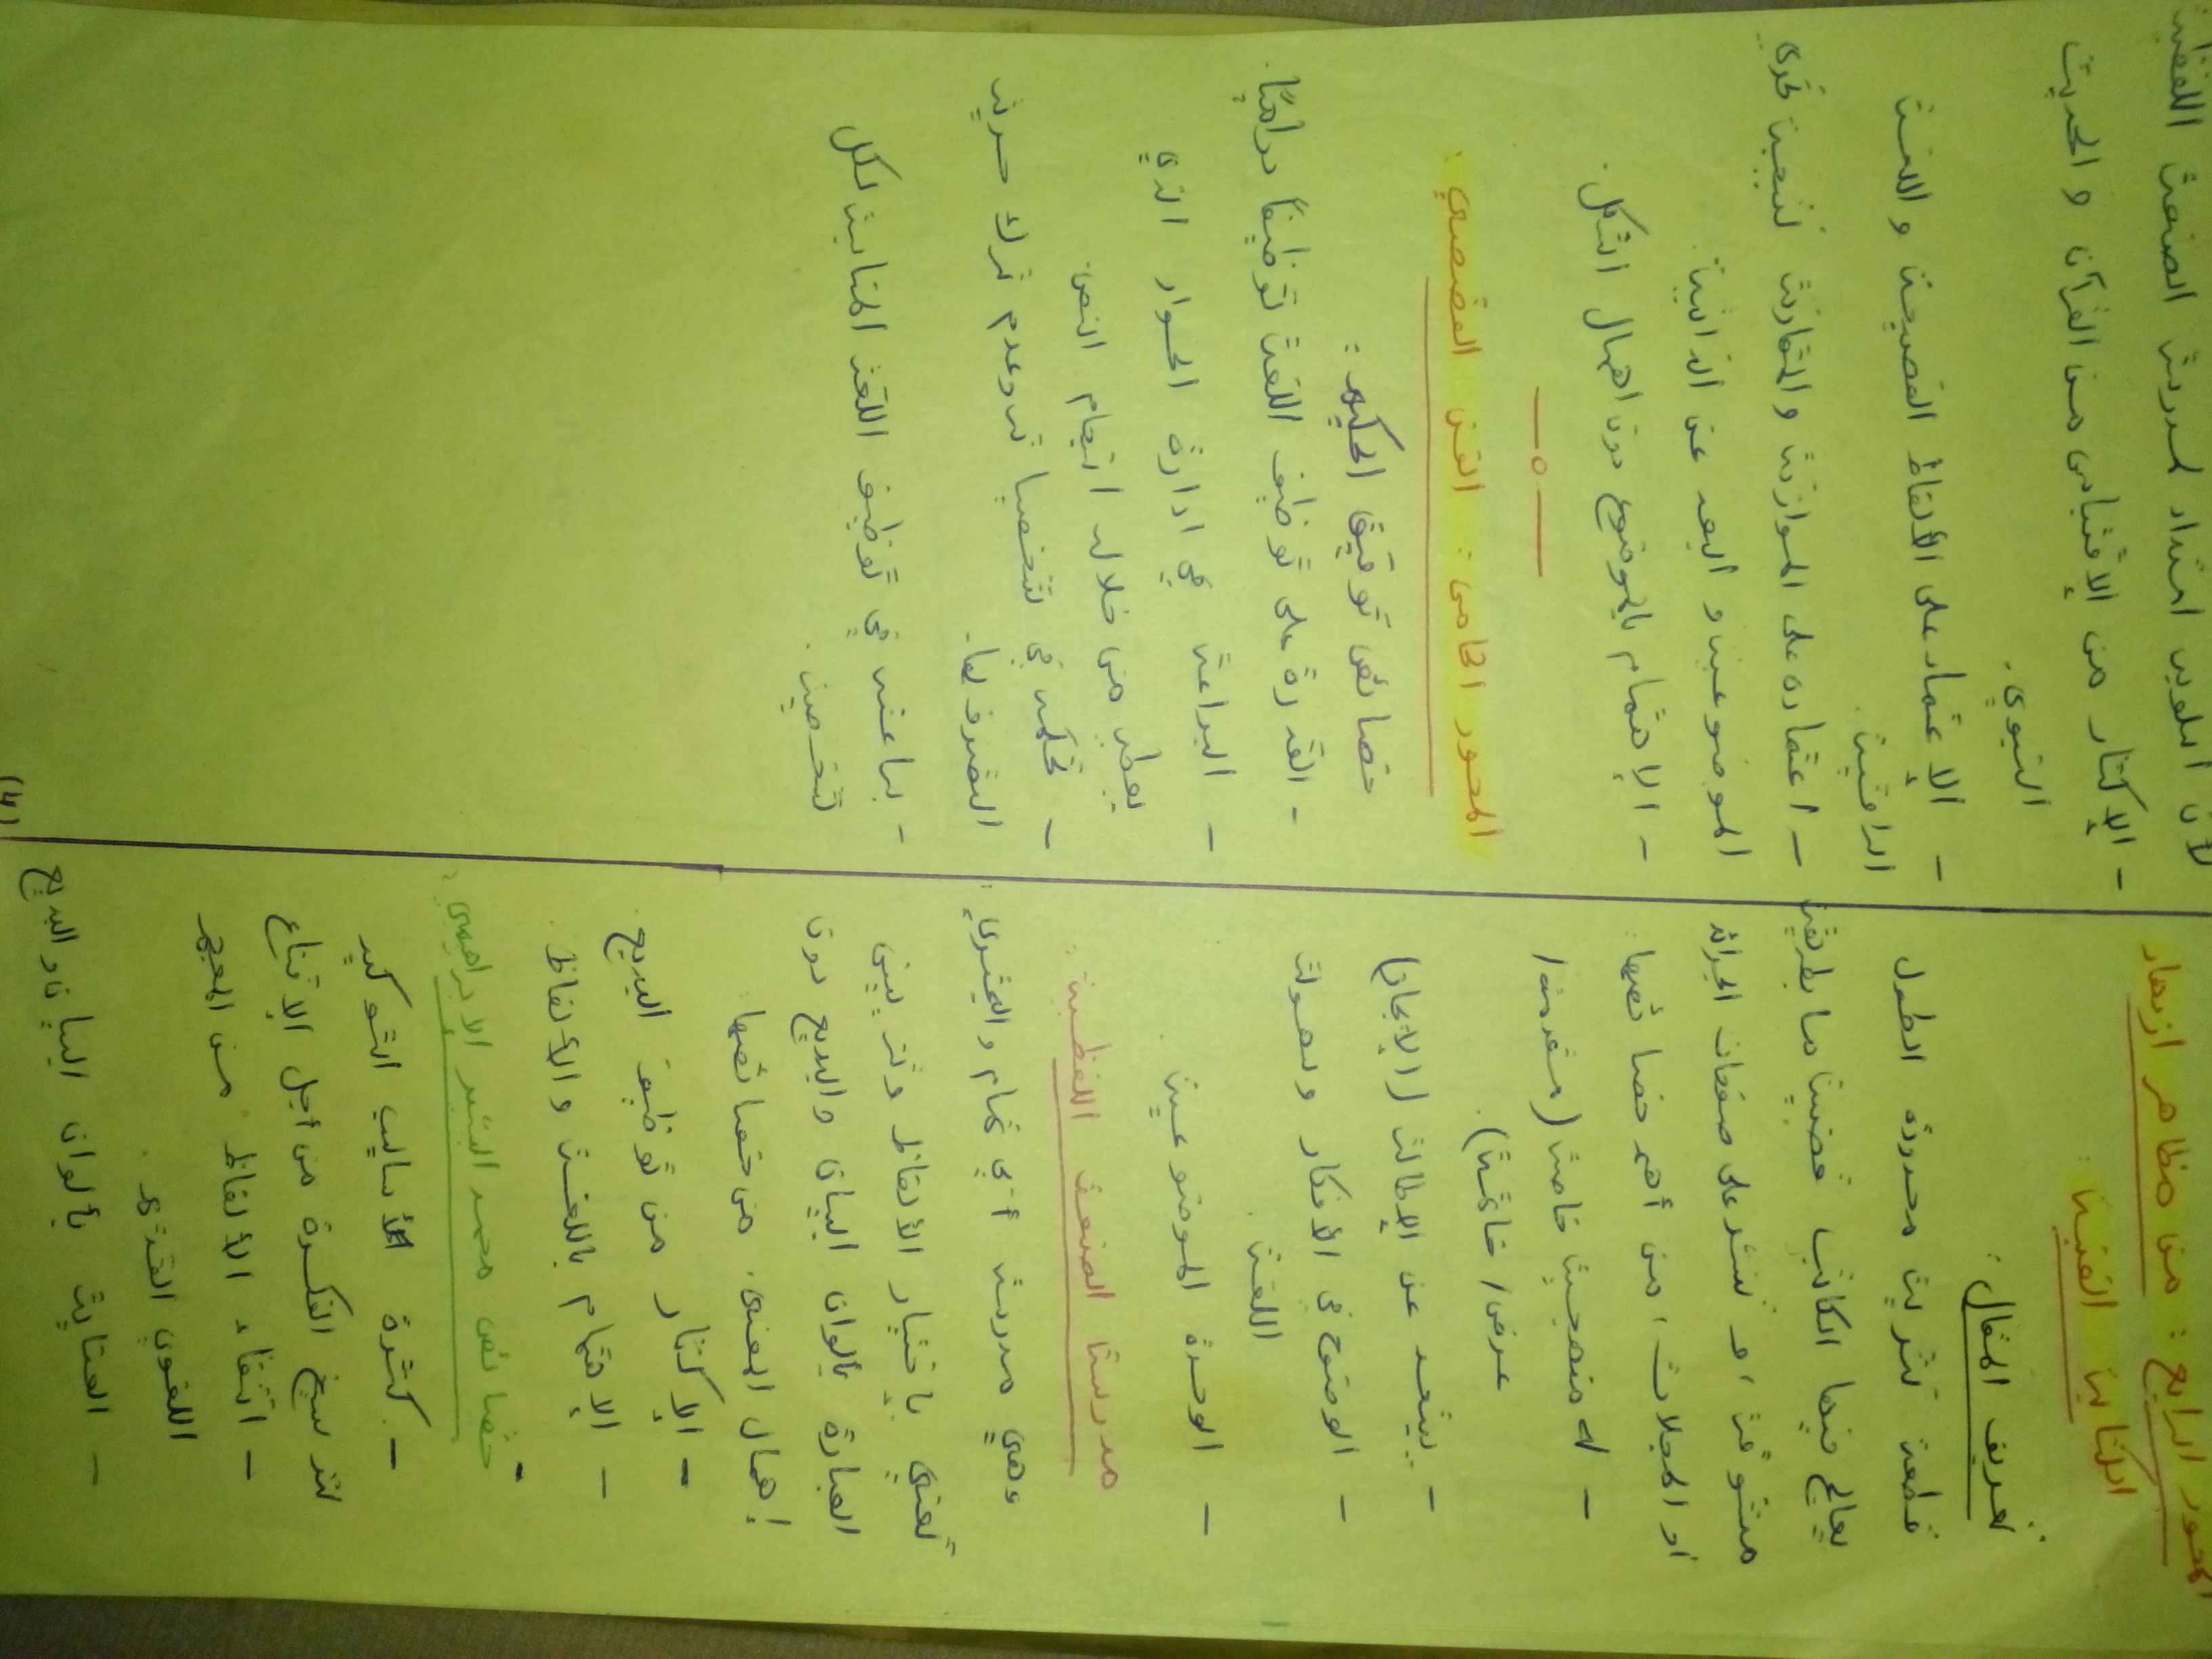 المحور الرابع: من مظاهر ازدهار
الكتابة الفنية:
تعريف المقال:
قطعة نثرية محدودة الطول
يعالج فيها الكاتب قضية ما بطريقة
مشوقة، و تنشر على صفحات الجرائد
او المجلات، من أهم خصائصها:
- له منهجية خاصة (مقدمة/
عرض/ خاتمة).
- يبتعد عن الإطالة (الإيجاز)
- الوضوح في الأفكار وسهولة
اللغة.
- الوحدة الموضوعية.
مدرسة الصنعة اللفظية:
وهي مدرسة أبي تمام والبحتري
تعتني باختيار الألفاظ وتزيين
العبارة بألوان البيان والبديع دون
إهمال المعنى. من خصائصها:
- الإكثار من توظيف البديع.
- الإهتمام باللغة والألفاظ.
خصائص محمد البشير الإبراهيمي:
- كثرة الأساليب التوكيد
لترسيخ الفكرة من أجل الإقناع
- انتقاء الألفاظ من المعجم
اللغوي القديم.
- العناية بألوان البيان و البديع
لأن أسلوبه امتداد لمدرسة الصنعة اللفظية
- الإكثار من الإقتباس من القرآن و الحديث
النبوي.
- الإعتماد على الألفاظ الفصيحة و اللغة
الراقية.
- اعتماده على الموازنة والمقارنة نتيجة تحري
الموضوعية و البعد عن الذاتية.
- الإهتمام بالموضوع دون اهمال الشكل.
المحور الخامس: الفن القصصي:
خصائص توفيق الحكيم:
- القدرة على توظيف اللغة توظيفًا دراميًا.
- البراعة في ادارة الحوار الذي
يعطي من خلاله انسجام النص.
- تحكمه في شخصياته وعدم ترك حرية
التصرف لها.
- براعته في توظيف اللغة المناسبة لكل
شخصية.
(4)